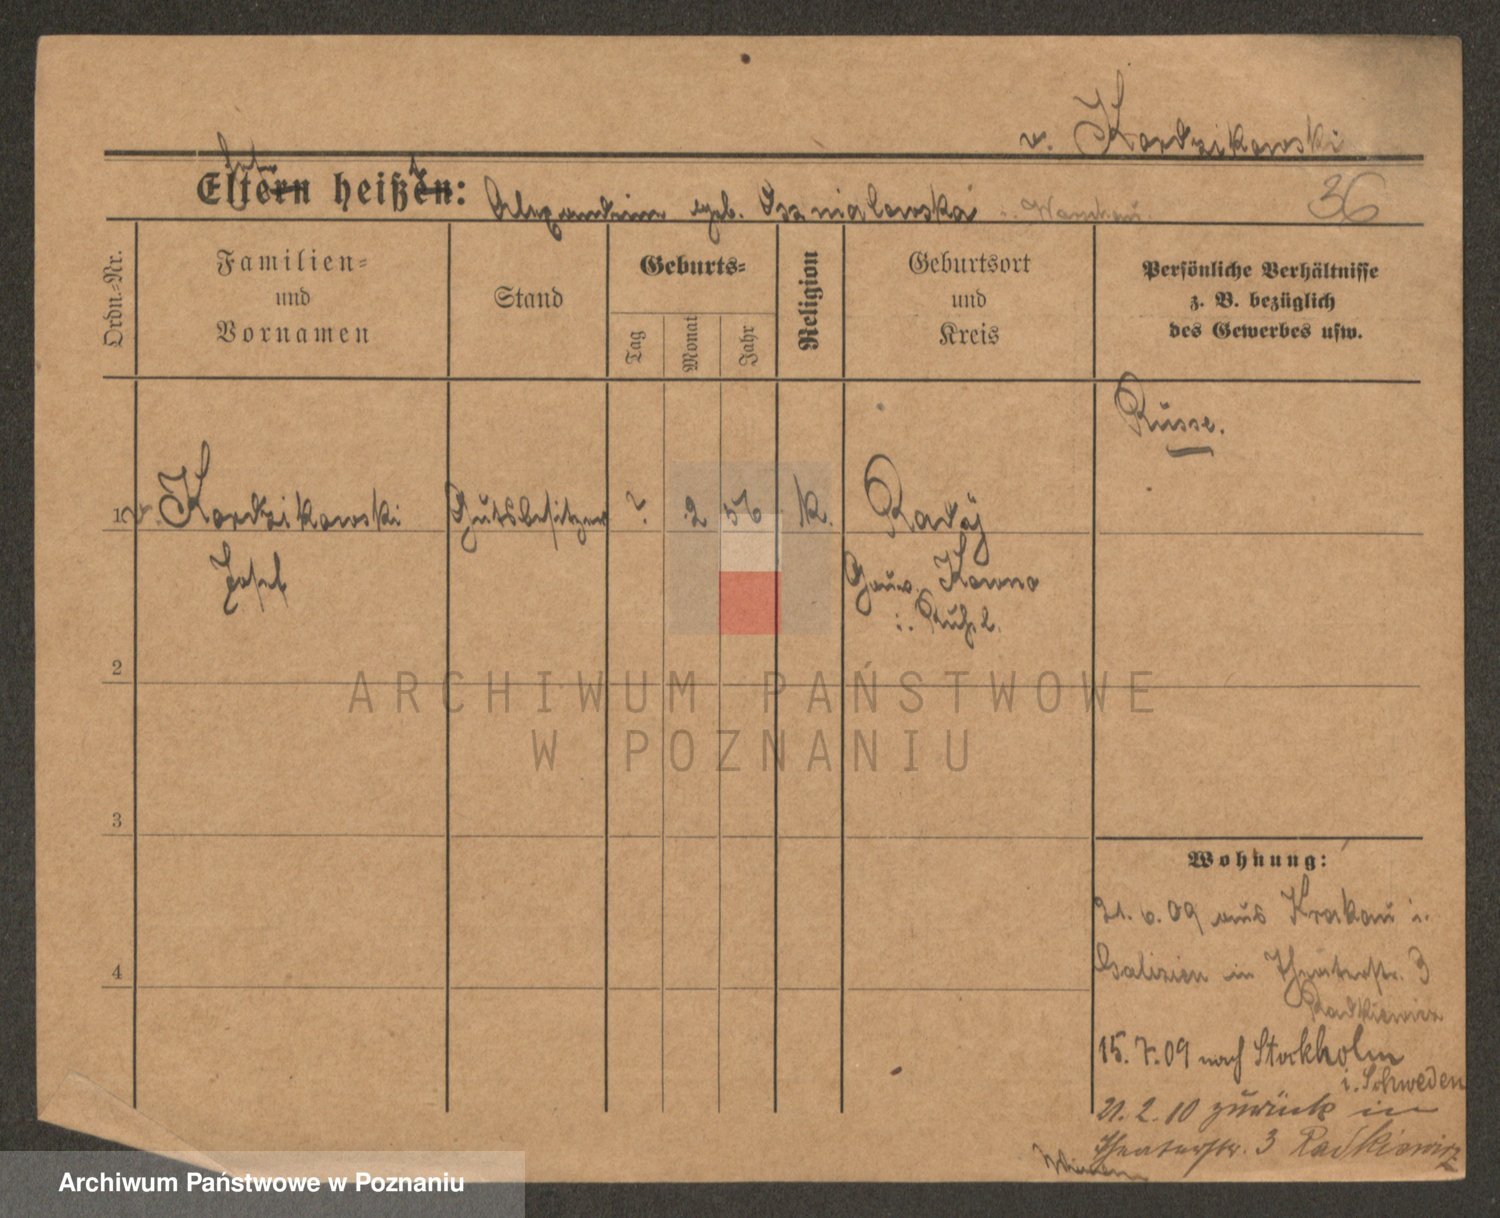 v. Kordzikowski
Eltern heißen:
geb.
36
Ordn.-Nr.
Familien-
und
Vornamen
Stand
Geburts-
Tag
Monat
Jahr
Religion
Geburtsort
und
Kreis
Persönliche Verhältnisse
z. B. bezüglich
des Gewerbes usw.
Russe.
1 v. Kordzikowski Gutsbesitzer ? 2 56 k. Radöj
Josef
Gouv. Kowno
i. Rußl.
2
ARCHIWUM PAŃSTWOWE
W POZNANIU
3
4
Wohnung:
21. 6. 09 aus Krakau i.
Galizien in Theaterstr. 3
Radkiewicz
15. 7. 09 nach Stockholm
i. Schweden
21. 2. 10 zurück in
Theaterstr. 3 Radkiewicz
Archiwum Państwowe w Poznaniu